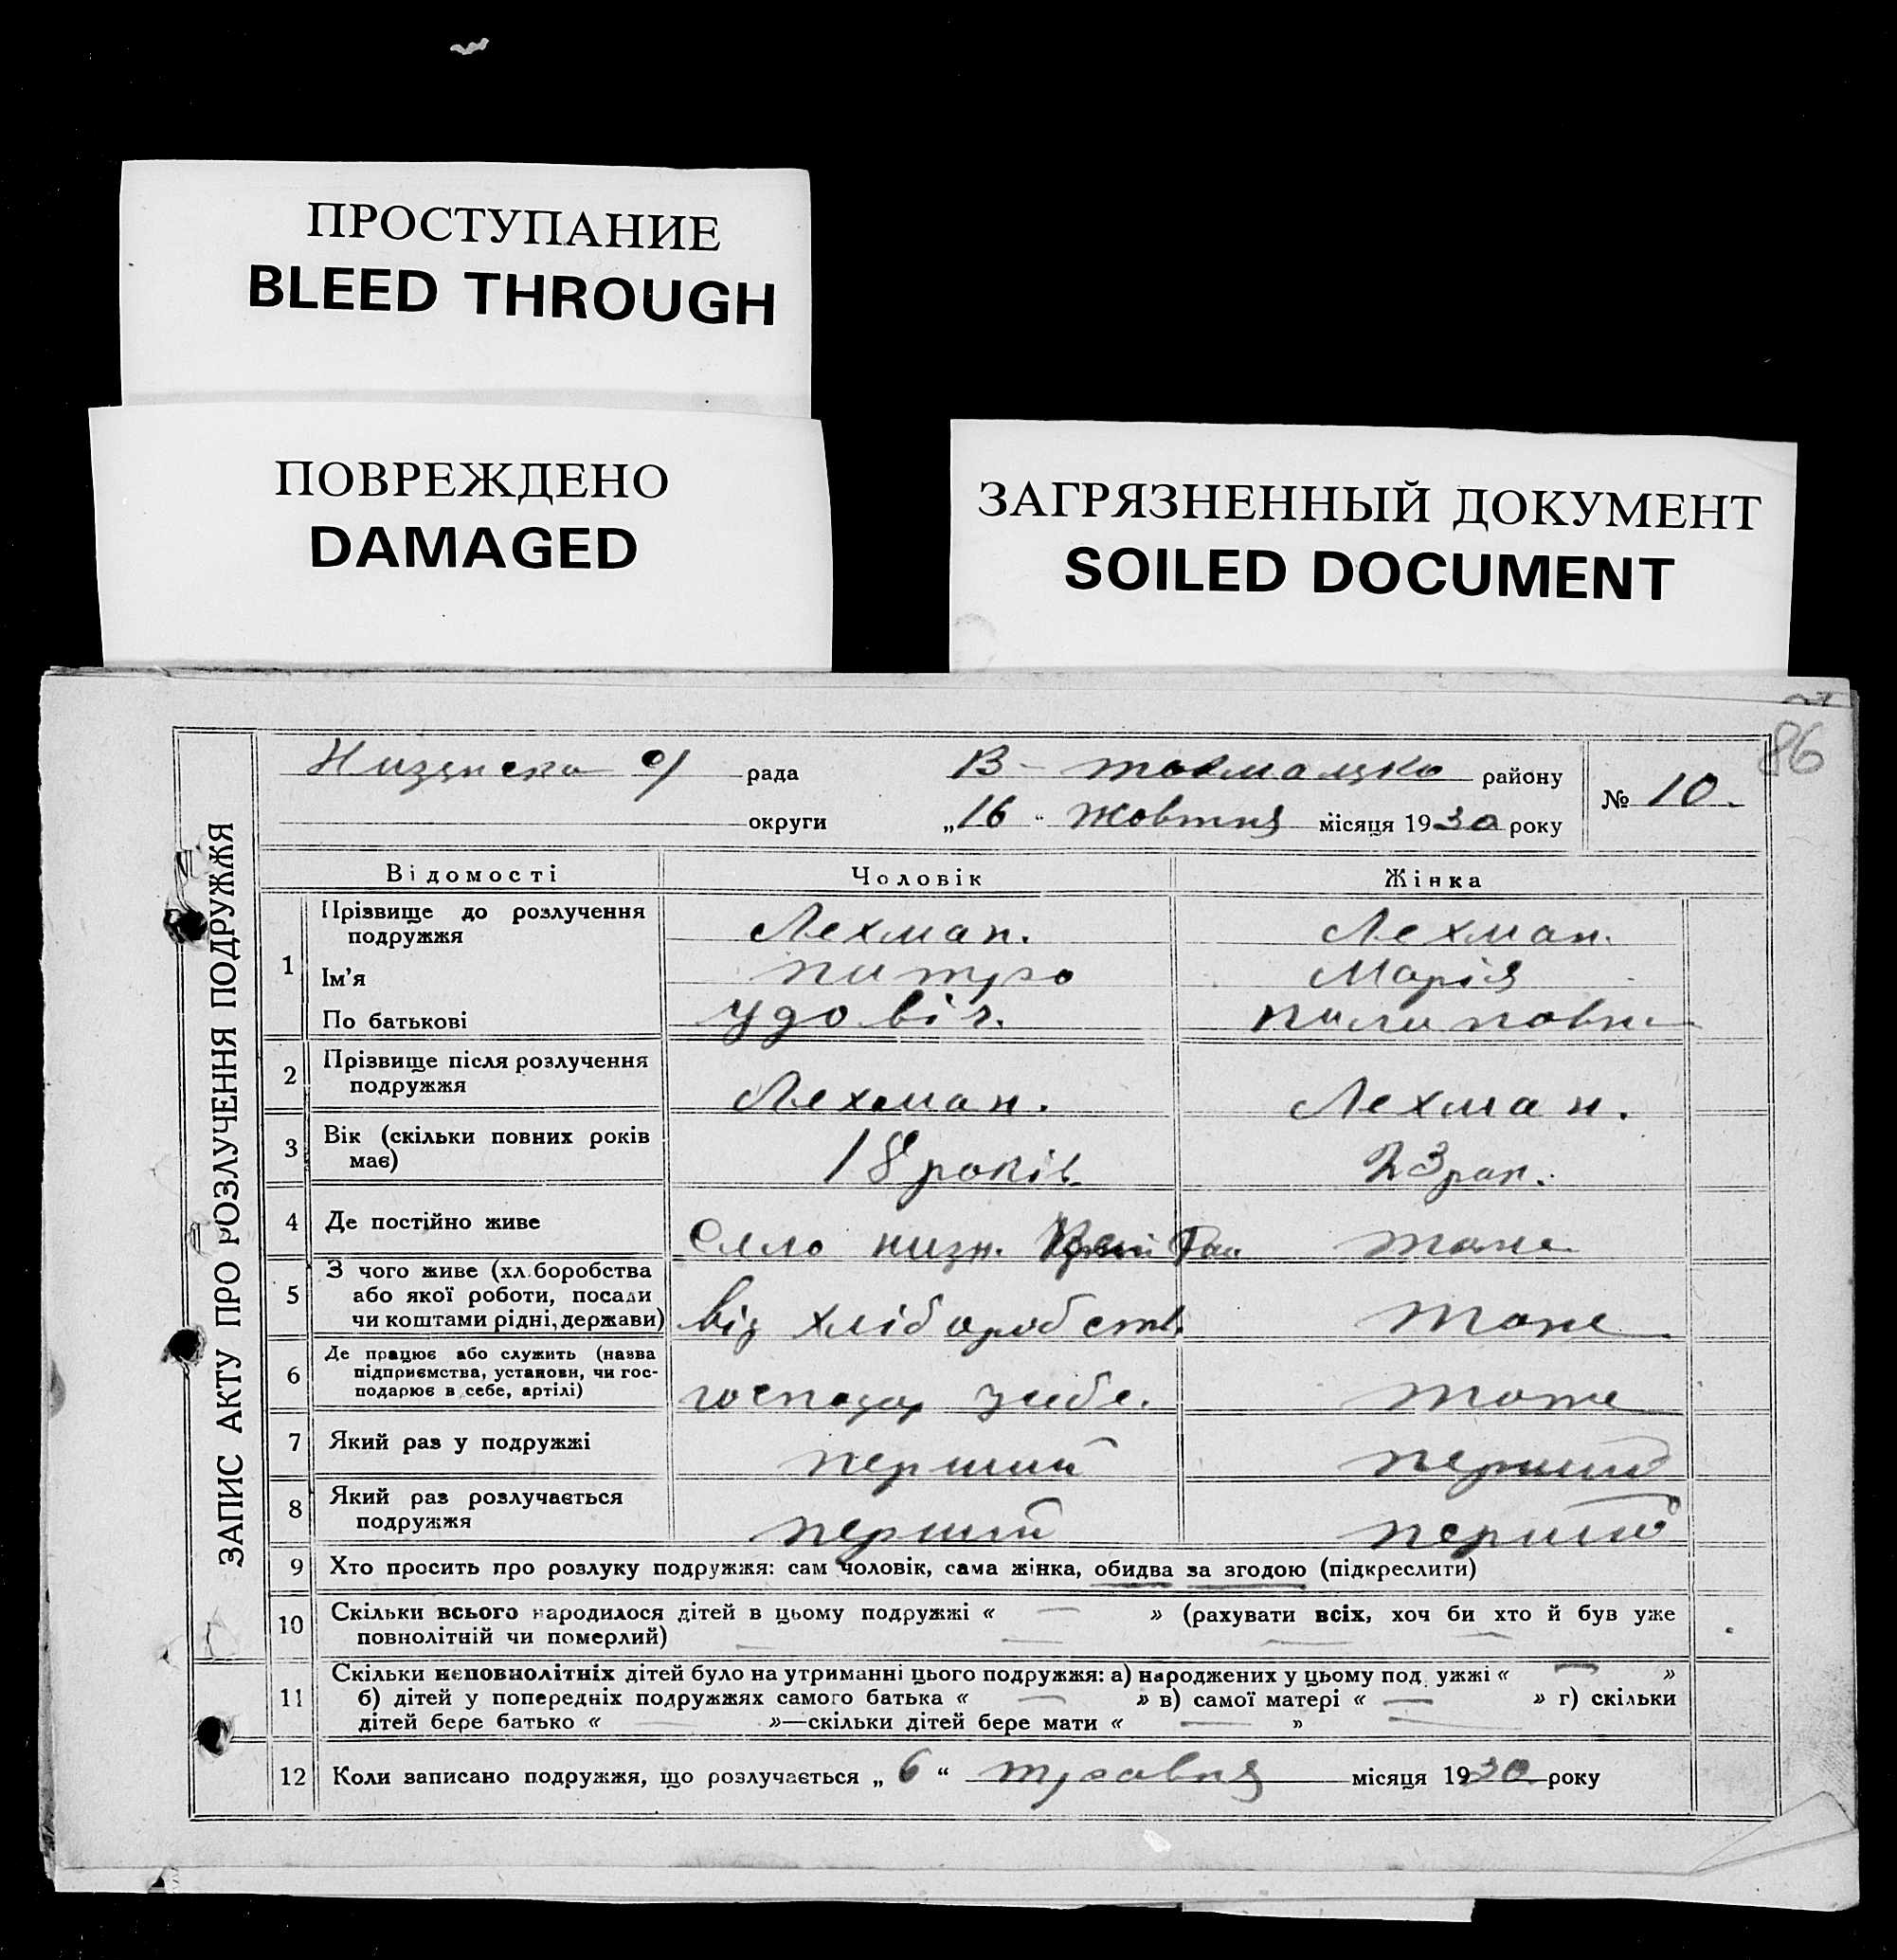 ПРОСТУПАНИЕ
BLEED THROUGH
ПОВРЕЖДЕНО
DAMAGED
ЗАГРЯЗНЕННЫЙ ДОКУМЕНТ
SOILED DOCUMENT
86
ЗАПИС АКТУ ПРО РОЗЛУЧЕННЯ ПОДРУЖЖЯ
рада В-токмацько району
№ 10.
округи „16“ Жовтня місяця 1930 року
Відомості Чоловік Жінка
1 Прізвище до розлучення подружжя Лехман. Лехман.
Ім'я питро Марія
По батькові пилиповна
2 Прізвище після розлучення
подружжя Лехман. Лехман.
3 Вік (скільки повних років
має) 18 років 23 рок.
4 Де постійно живе Село низн. тоже
5 З чого живе (хл.боробства
або якої роботи, посади
чи коштами рідні, держави) від хліборобств. тоже
6 Де працює або служить (назва
підприємства, установи, чи гос-
подарює в себе, артілі) господар усебе. тоже
7 Який раз у подружжі перший перший
8 Який раз розлучається
подружжя перший перший
9 Хто просить про розлуку подружжя: сам чоловік, сама жінка, обидва за згодою (підкреслити)
10 Скільки всього народилося дітей в цьому подружжі « — » (рахувати всіх, хоч би хто й був уже
повнолітній чи померлий)
11 Скільки неповнолітніх дітей було на утриманні цього подружжя: а) народжених у цьому под ужжі « — »
б) дітей у попередніх подружжях самого батька « — » в) самої матері « — » г) скільки
дітей бере батько « — »—скільки дітей бере мати « — »
12 Коли записано подружжя, що розлучається „ 6 “ травня місяця 1930 року